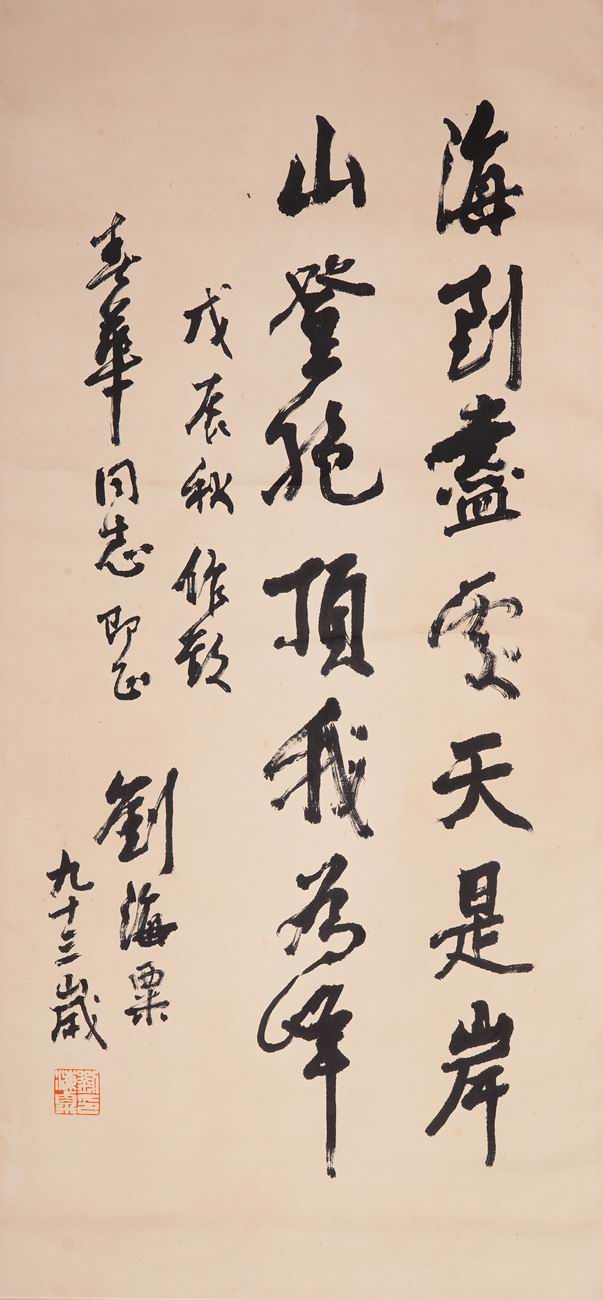 海到盡處天是岸
山登絶頂我為峰
戊辰秋作歟
春華同志即正
劉海粟
九十三歲